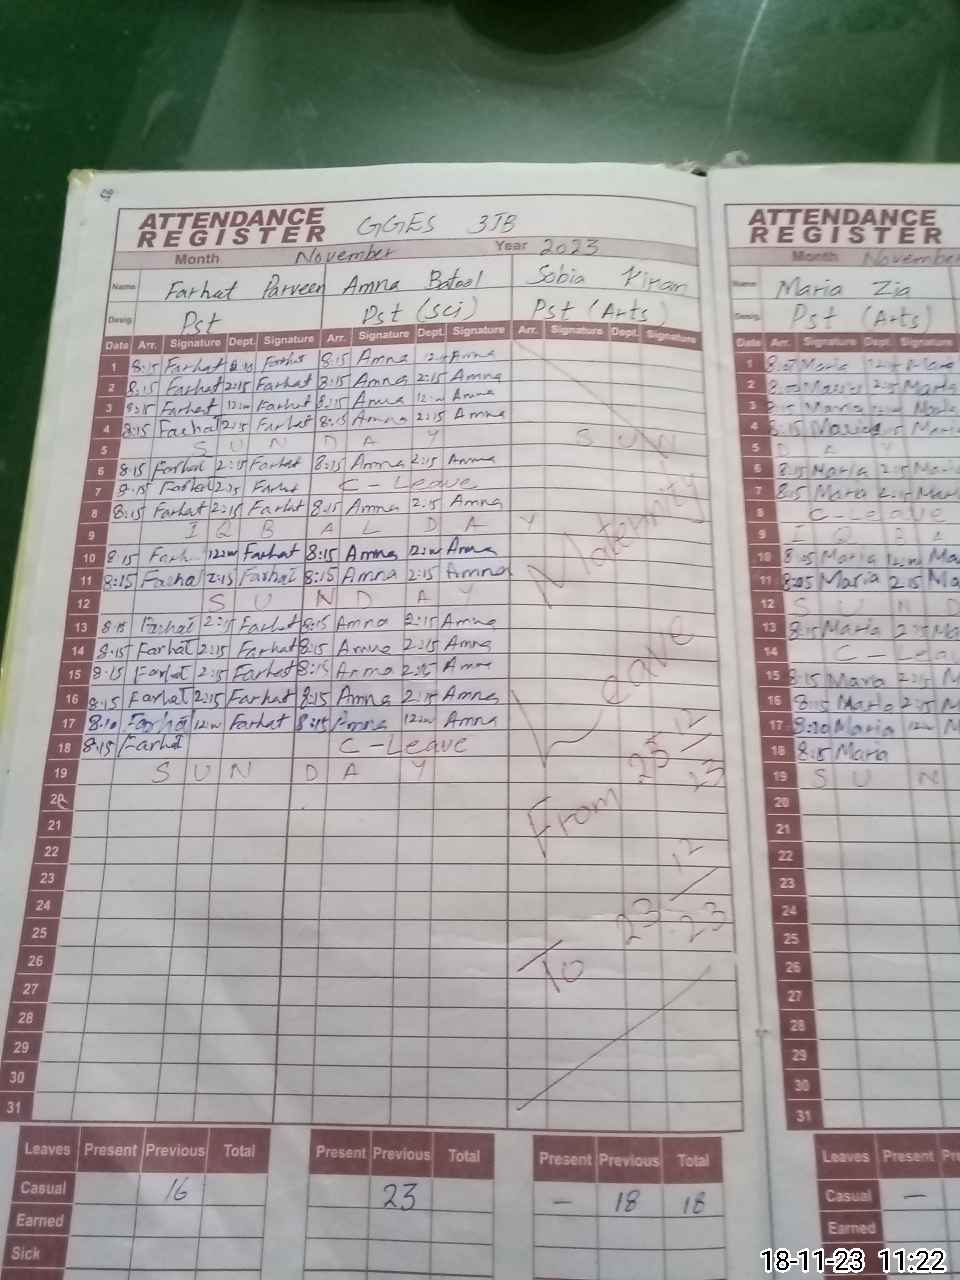 ATTENDANCE REGISTER GGES 3JB
Month November Year 2023
Name Farhat Parveen Amna Batool Sobia Kiran
Desig. Pst Pst (sci) Pst (Arts)
Date Arr. Signature Dept. Signature Arr. Signature Dept. Signature Arr. Signature Dept. Signature
1 8:15 Farhat Farhat 8:15 Amna Amna
2 8:15 Farhat 2:15 Farhat 8:15 Amna 2:15 Amna
3 8:15 Farhat Farhat 8:15 Amna Amna
4 8:15 Farhat 2:15 Farhat 8:15 Amna 2:15 Amna
5 S U N D A Y S U N
6 8:15 Farhat 2:15 Farhat 8:15 Amna 2:15 Amna
7 8:15 Farhat 2:15 Farhat C-Leave
8 8:15 Farhat 2:15 Farhat 8:15 Amna 2:15 Amna
9 I Q B A L D A Y
10 8:15 Farhat 8:15 Amna Amna
11 8:15 Farhat 2:15 Farhat 8:15 Amna 2:15 Amna
12 S U N D A Y
13 8:15 Farhat 2:15 Farhat 8:15 Amna 2:15 Amna
14 8:15 Farhat 2:15 Farhat 8:15 Amna 2:15 Amna
15 8:15 Farhat 2:15 Farhat 8:15 Amna 2:15 Amna
16 8:15 Farhat 2:15 Farhat 8:15 Amna 2:15 Amna
17 8:10 Farhat Farhat 8:15 Amna Amna
18 8:15 Farhat C-Leave
19 S U N D A Y
20
21
22
23
24
25
26
27
28
29
30
31
Maternity
Leave
From 25
To 23
Leaves Present Previous Total Present Previous Total Present Previous Total
Casual 16 23 – 18 18
Earned
Sick
ATTENDANCE REGISTER
Month November
Name Maria Zia
Desig. Pst (Arts)
Date Arr. Signature Dept. Signature
1 8:05 Maria
2 Maria 2:15 Maria
3 8:15 Maria Maria
4 8:15 Maria
5 D A Y
6 8:15 Maria 2:15
7 8:15 Maria 2:15
8 C-Leave
9 I Q B A
10 8:05 Maria
11 8:05 Maria 2:15
12 S U N D
13 8:15 Maria 2:15
14 C-Lea
15 8:15 Maria 2:15
16 8:15 Maria 2:15
17 8:10 Maria
18 8:15 Maria
19 S U N
20
21
22
23
24
25
26
27
28
29
30
31
Leaves Present
Casual –
Earned
18-11-23 11:22